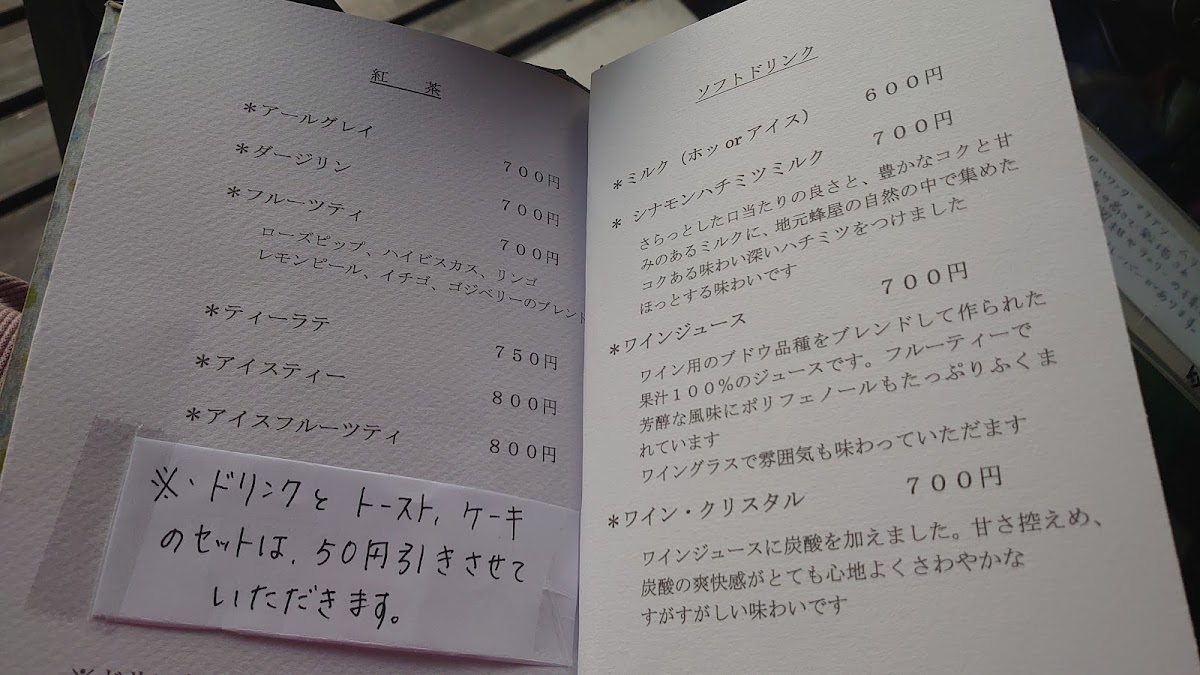 紅　茶
＊アールグレイ
７００円
＊ダージリン
７００円
＊フルーツティ
７００円
ローズピップ、ハイビスカス、リンゴ
レモンピール、イチゴ、ゴジベリーのブレンド
＊ティーラテ
７５０円
＊アイスティー
８００円
＊アイスフルーツティ
８００円
※・ドリンクと トースト，ケーキ
のセットは，５０円引きさせて
いただきます。
ソフトドリンク
＊ミルク（ホッ or アイス）　６００円
＊ シナモンハチミツミルク　７００円
さらっとした口当たりの良さと、豊かなコクと甘
みのあるミルクに、地元蜂屋の自然の中で集めた
コクある味わい深いハチミツをつけました
ほっとする味わいです
＊ワインジュース　７００円
ワイン用のブドウ品種をブレンドして作られた
果汁１００％のジュースです。フルーティーで
芳醇な風味にポリフェノールもたっぷりふくま
れています
ワイングラスで雰囲気も味わっていただます
＊ワイン・クリスタル　７００円
ワインジュースに炭酸を加えました。甘さ控えめ、
炭酸の爽快感がとても心地よくさわやかな
すがすがしい味わいです